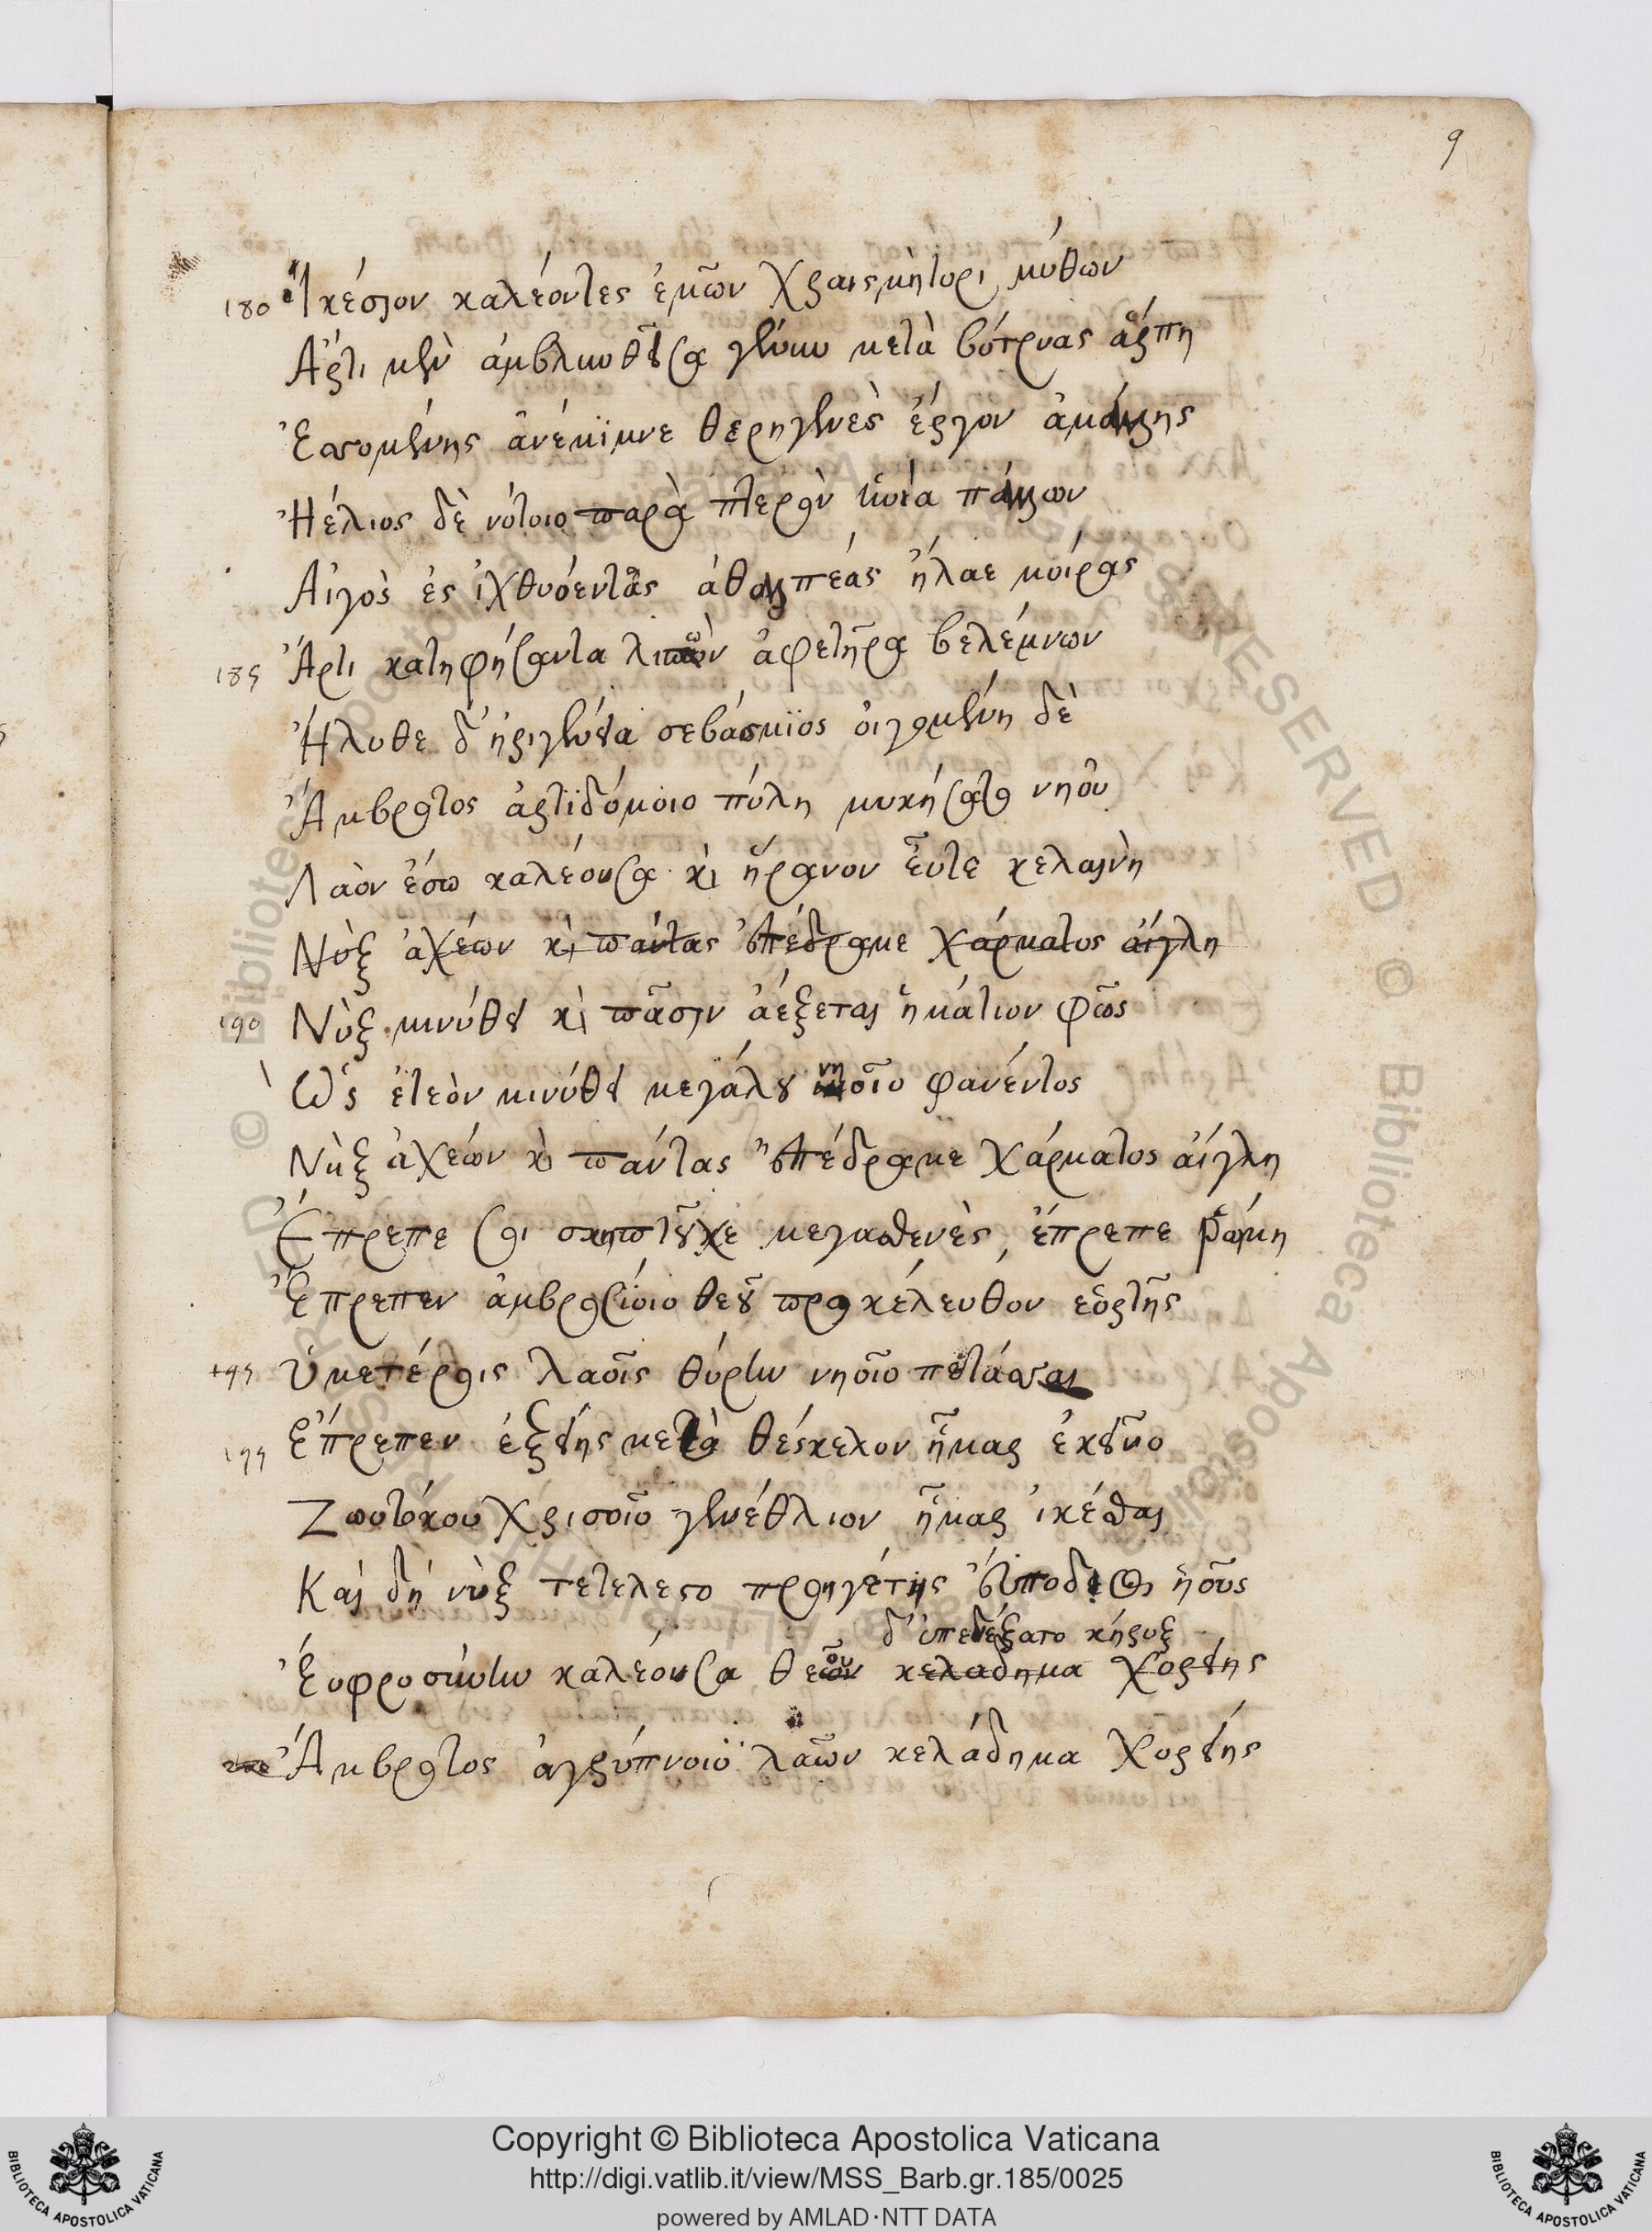 9
180 Ἱκέσιον καλέοντες ἐμῶν χραισμήτορι μύθων
Ἄρτι μὲν ἀμβλυνθεῖσα γένυν μετὰ βότρυας ἅρπη
Ἐσσομένης ἀνέμιμνε θερηγενὲς ἔργον ἀμάλλης
Ἠέλιος δὲ νότοιο παρὰ πτερὸν ἡνία πάλλων
Αἰγὸς ἐς ἰχθυόεντας ἀθαλπέας ἤλασε μοίρας
185 Ἄρτι κατηφήσαντα λιπὼν ἀφετῆρα βελέμνων
Ἤλυθε δ' ἠριγένεια σεβάσμιος οἰγομένη δὲ
Ἄμβροτος ἀρτιδόμοιο πύλη μυκήσατο νηοῦ
Λαὸν ἔσω καλέουσα κὶ ἤρανον εὖτε κελαινὴ
Νὺξ ἀχέων κὶ πάντας ἐπέδραμε χάρματος αἴγλη
190 Νὺξ μινύθει κὶ πᾶσιν ἀέξεται ἠμάτιον φῶς
Ὣς ἐτεὸν μινύθει μεγάλου νηοῖο φανέντος
Νὺξ ἀχέων κὶ πάντας ἐπέδραμε χάρματος αἴγλη
Ἔπρεπε σοι σκηπτοῦχε μεγασθενὲς, ἔπρεπε Ῥώμη
Ἔπρεπεν ἀμβροσίοιο θεοῦ προκέλευθον ἑορτῆς
195 Ὑμετέροις λαοῖς θύρην νηοῖο πετάσσαι
199 Ἔπρεπεν ἑξείης μετὰ θέσκελον ἦμαρ ἐκεῖνο
Ζωοτόκου Χριστοῖο γενέθλιον ἦμαρ ἱκέσθαι
Καὶ δὴ νὺξ τετέλεστο προηγέτις εὐποδι ἠοῦς
δ' ὑπεδέξατο κήρυξ
Εὐφροσύνην καλέουσα θεοῦ κελαδημα χορείης
Ἄμβροτος ἀγρύπνοιο λαῶν κελάδημα χορείης
Copyright © Biblioteca Apostolica Vaticana
http://digi.vatlib.it/view/MSS_Barb.gr.185/0025
powered by AMLAD·NTT DATA
BIBLIOTECA APOSTOLICA VATICANA
BIBLIOTECA APOSTOLICA VATICANA